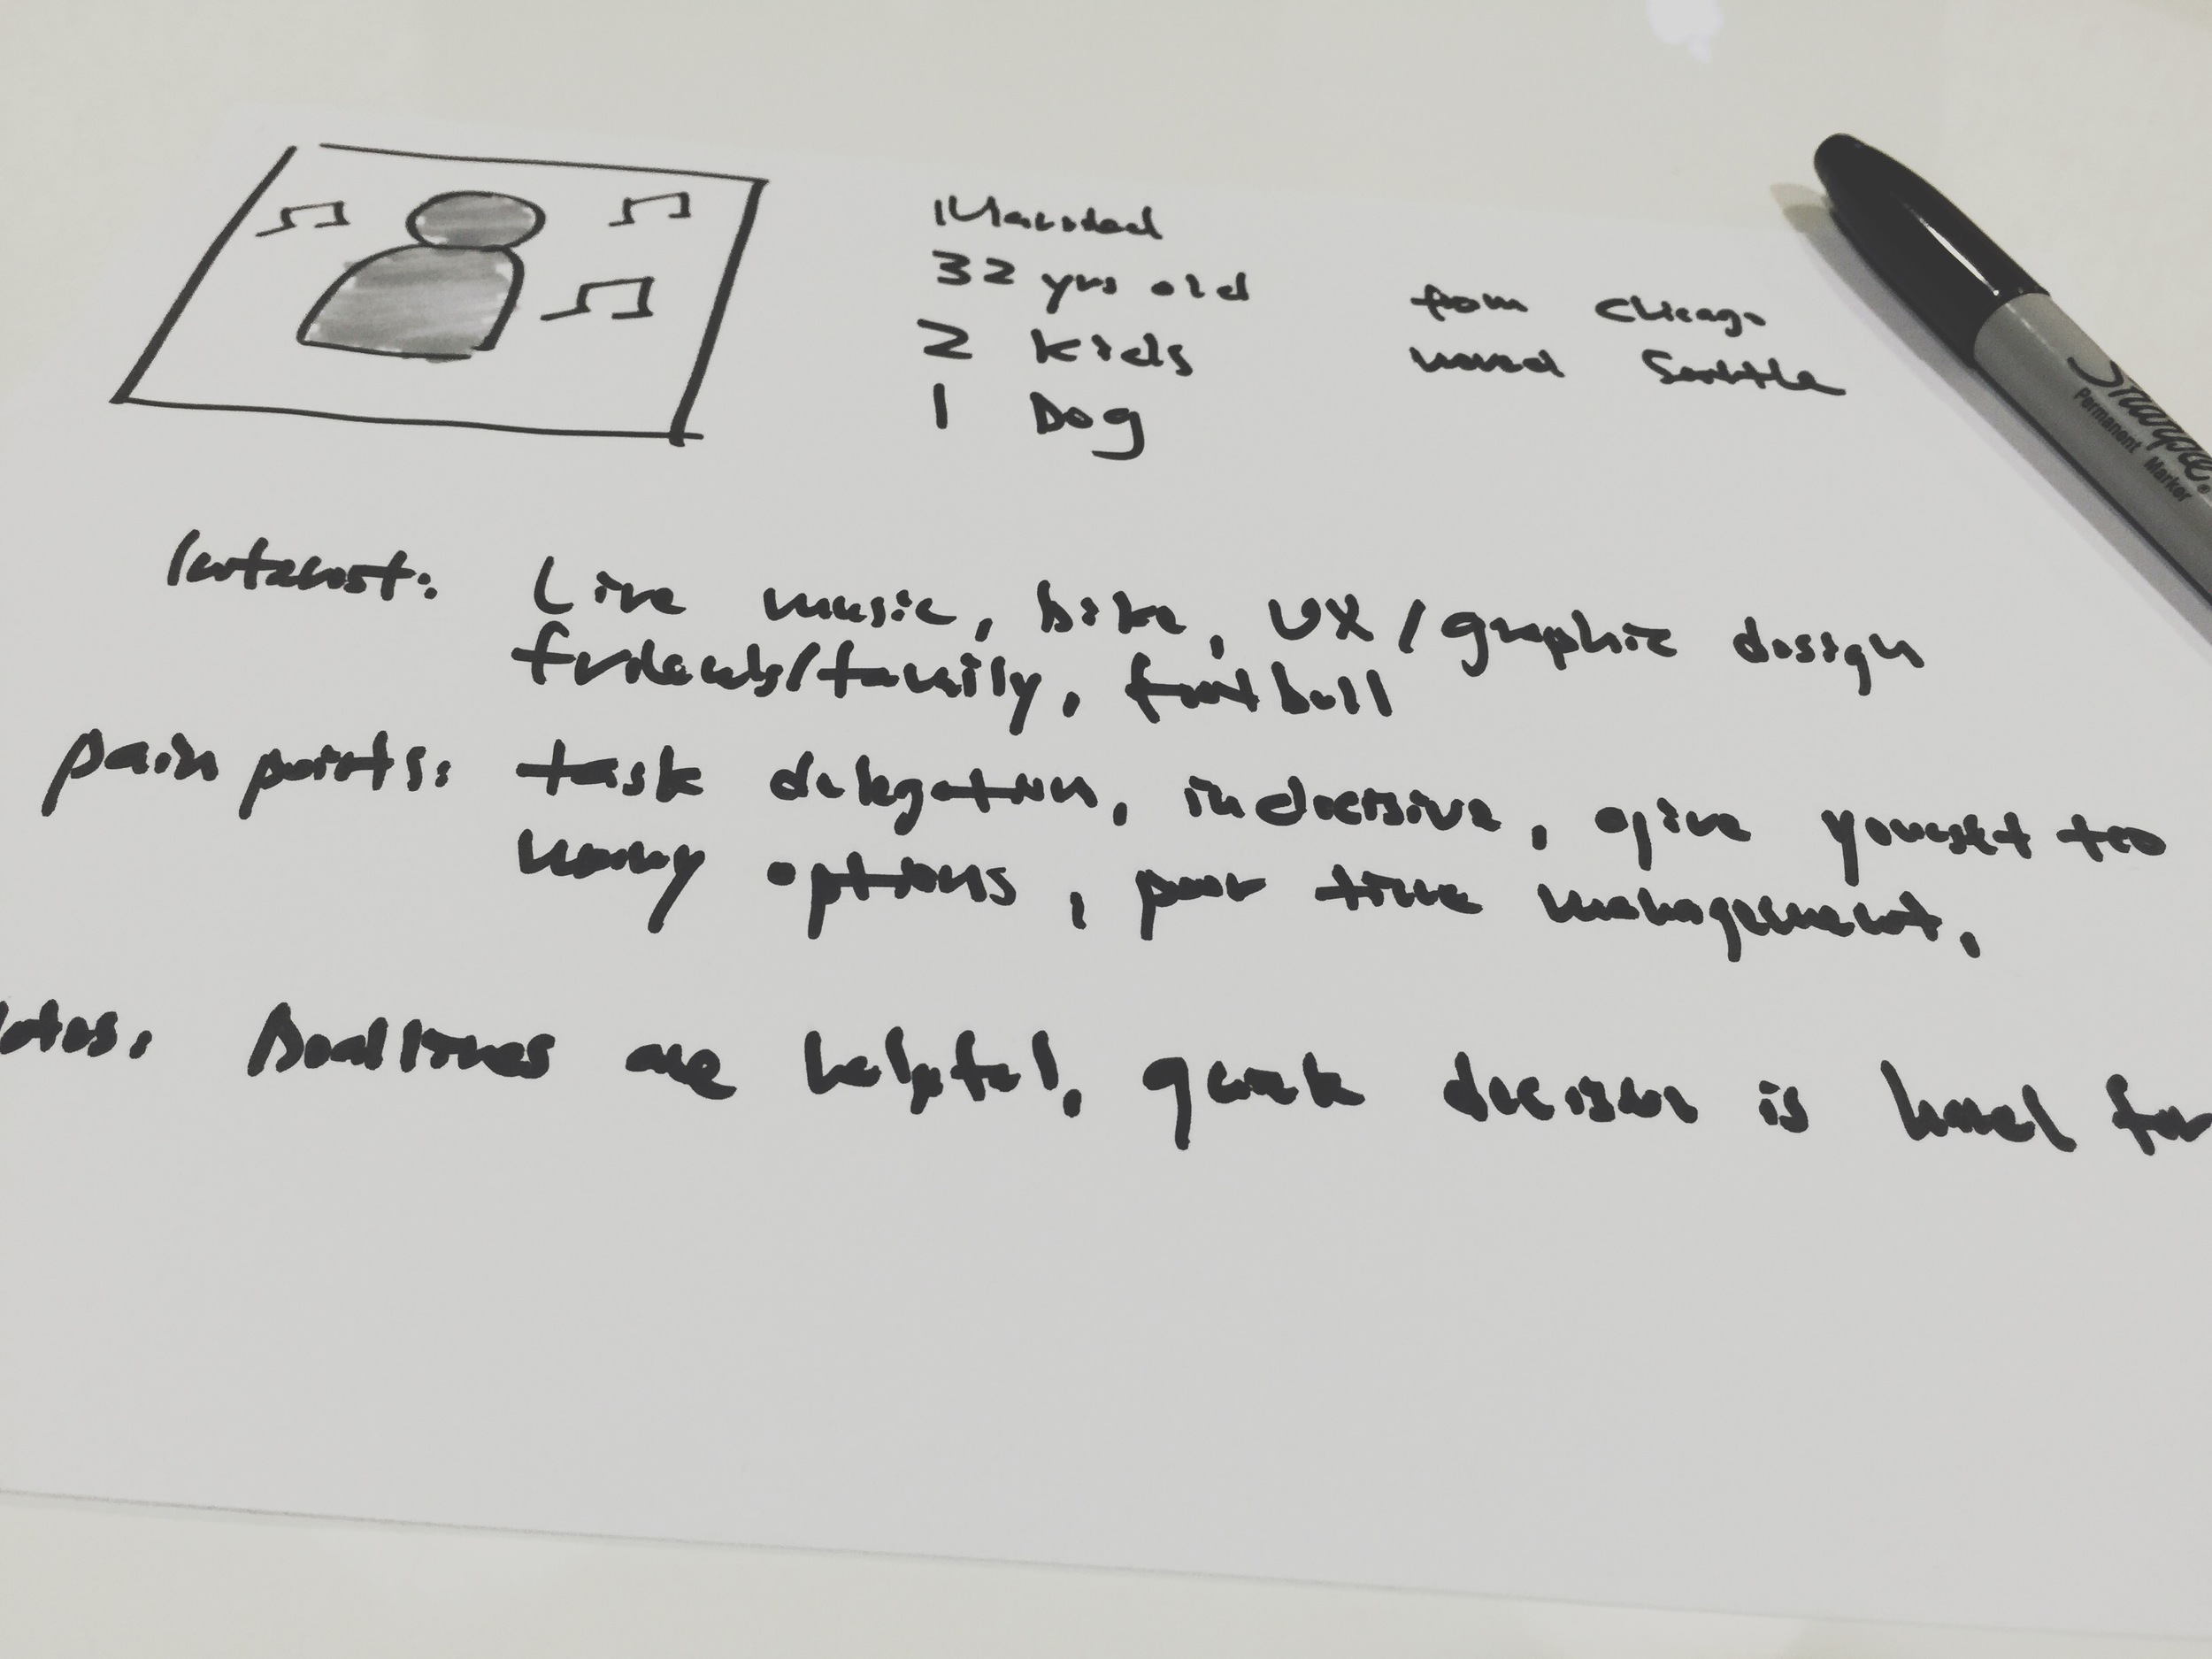 Married
32 yrs old
2 kids
1 Dog
from Chicago
moved Seattle
Interest: Live music, bike, UX/graphic design
friends/family, football
pain points: task delegation, indecisive, give yourself too
many options, poor time management.
Deadlines are helpful, quick decision is hard for
Sharpie.
Permanent Marker